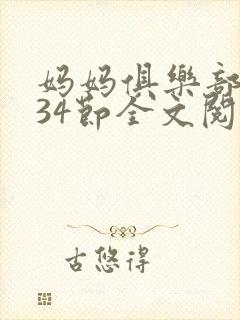 妈妈俱樂部
34節全文閱
古悠得